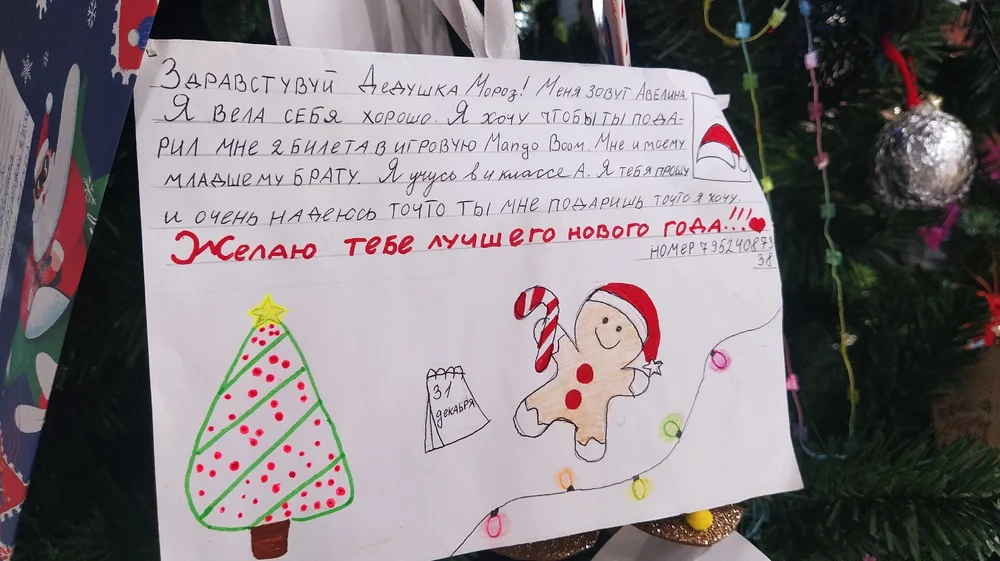 Здравствуй Дедушка Мороз! Меня зовут Авелина.
Я вела себя хорошо. Я хочу чтобы ты пода-
рил мне 2 билета в игровую Mango Boom. Мне и моему
младшему брату. Я учусь в 4 классе А. Я тебя прошу
и очень надеюсь точто ты мне подаришь точто я хочу.
Желаю тебе лучшего нового года!!!
номер 795240873
38
31
декабря